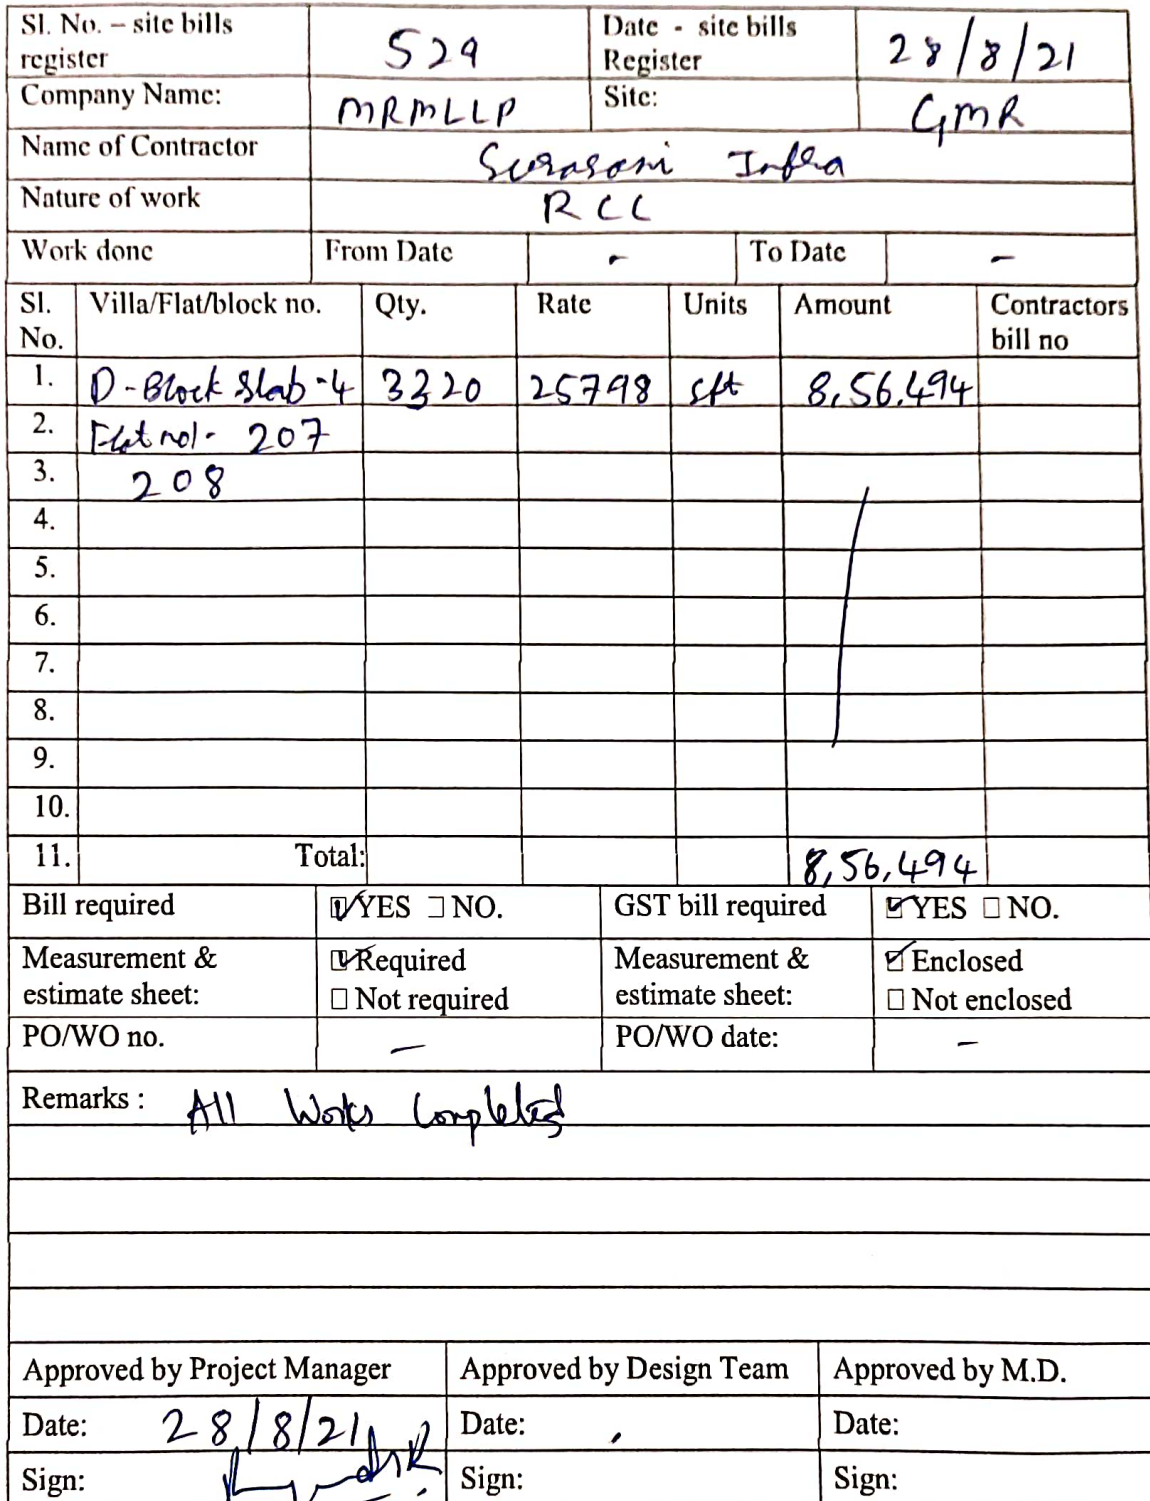 Sl. No. – site bills register 529 Date - site bills Register 28/8/21
Company Name: MRMLLP Site: GMR
Name of Contractor Surasani Infra
Nature of work RCC
Work done From Date - To Date -
Sl. No. Villa/Flat/block no. Qty. Rate Units Amount Contractors bill no
1. D-Block Slab-4 3320 25798 sft 8,56,494
2. Flat no1- 207
3. 208
4.
5.
6.
7.
8.
9.
10.
11. Total: 8,56,494
Bill required ☑YES ☐NO. GST bill required ☑YES ☐NO.
Measurement & estimate sheet: ☑Required ☐Not required Measurement & estimate sheet: ☑Enclosed ☐Not enclosed
PO/WO no. - PO/WO date: -
Remarks : All Works Completed
Approved by Project Manager Approved by Design Team Approved by M.D.
Date: 28/8/21 Date: Date:
Sign: Sign: Sign: